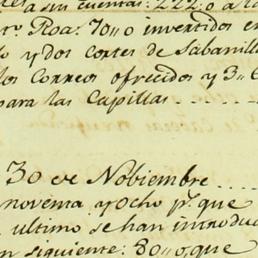 a sus cuentas: 222. o a la
Roa: 70 " o invertidos en
y dos cortes de Sabanilla
los Correos ofrecidos y 3 "
para las Capillas
30 de Nobiembre
novema y ocho p.s que
ultimo se han introdu
siguiente: 80 " o, que